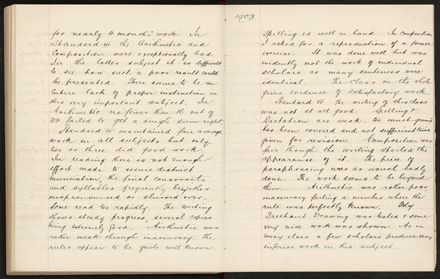 for nearly 10 months' work. In
Standard III the Arithmetic and
Composition were exceptionally bad.
In the latter subject it is difficult
to see how such a poor result could
be presented. There seems to be an
entire lack of proper instruction in
this very important subject. In
Arithmetic no fewer than 16 out of
20 failed to get a single sum right.
Standard IV maintained fair average
work in all subjects but only
two or three did good work.
In reading there is not enough
effort made to secure distinct
enunciation, & final consonants
and syllables frequently being
mispronounced or slurred over.
Some read too rapidly. The writing
shows steady progress, several copies
being entirely good. Arithmetic was
rather weak through inaccuracy the
rules appear to be quite well known.
1903
Spelling is well in hand. In composition
I asked for a reproduction of a former
exercise. It was done well but was
evidently not the work of individual
scholars as many sentences were
identical. The class on the whole
gives evidence of satisfactory work.
Standard V. The writing of this class
was not at all good. Spelling &
Dictation are weak. Too much ground
has been covered and not sufficient time
given for revision. Composition was
fair though the writing affected the
appearance of it. The piece of
paraphrasing was as usual badly
done. The work seems to be beyond
them. Arithmetic was rather poor
inaccuracy foiling a number where the
rule was perfectly known.
Freehand Drawing was tested & some
very nice work was shown. As in
every class a few scholars produce very
inferior work in this subject.